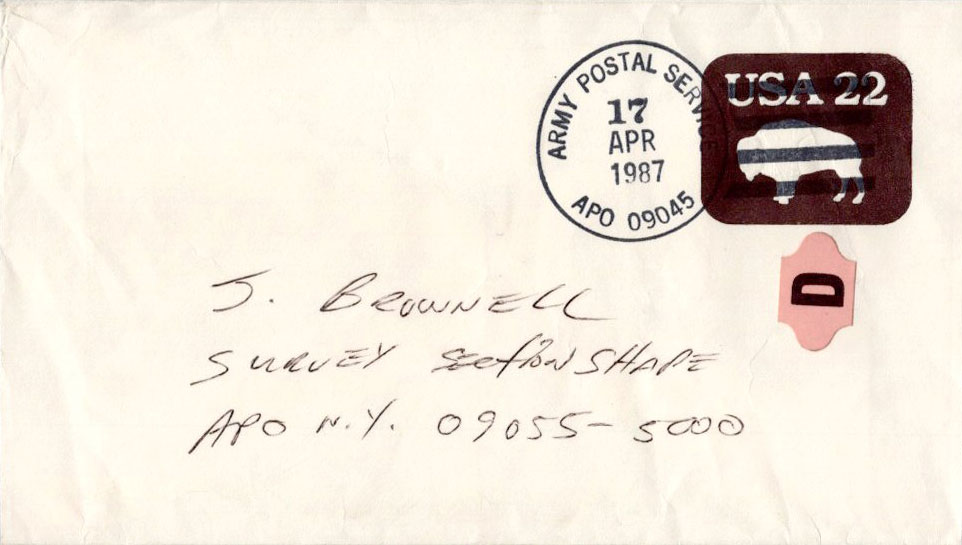 ARMY POSTAL SERVICE
17
APR
1987
APO 09045
USA 22
D
J. BROWNELL
SURVEY Section SHAPE
APO N.Y. 09055-5000